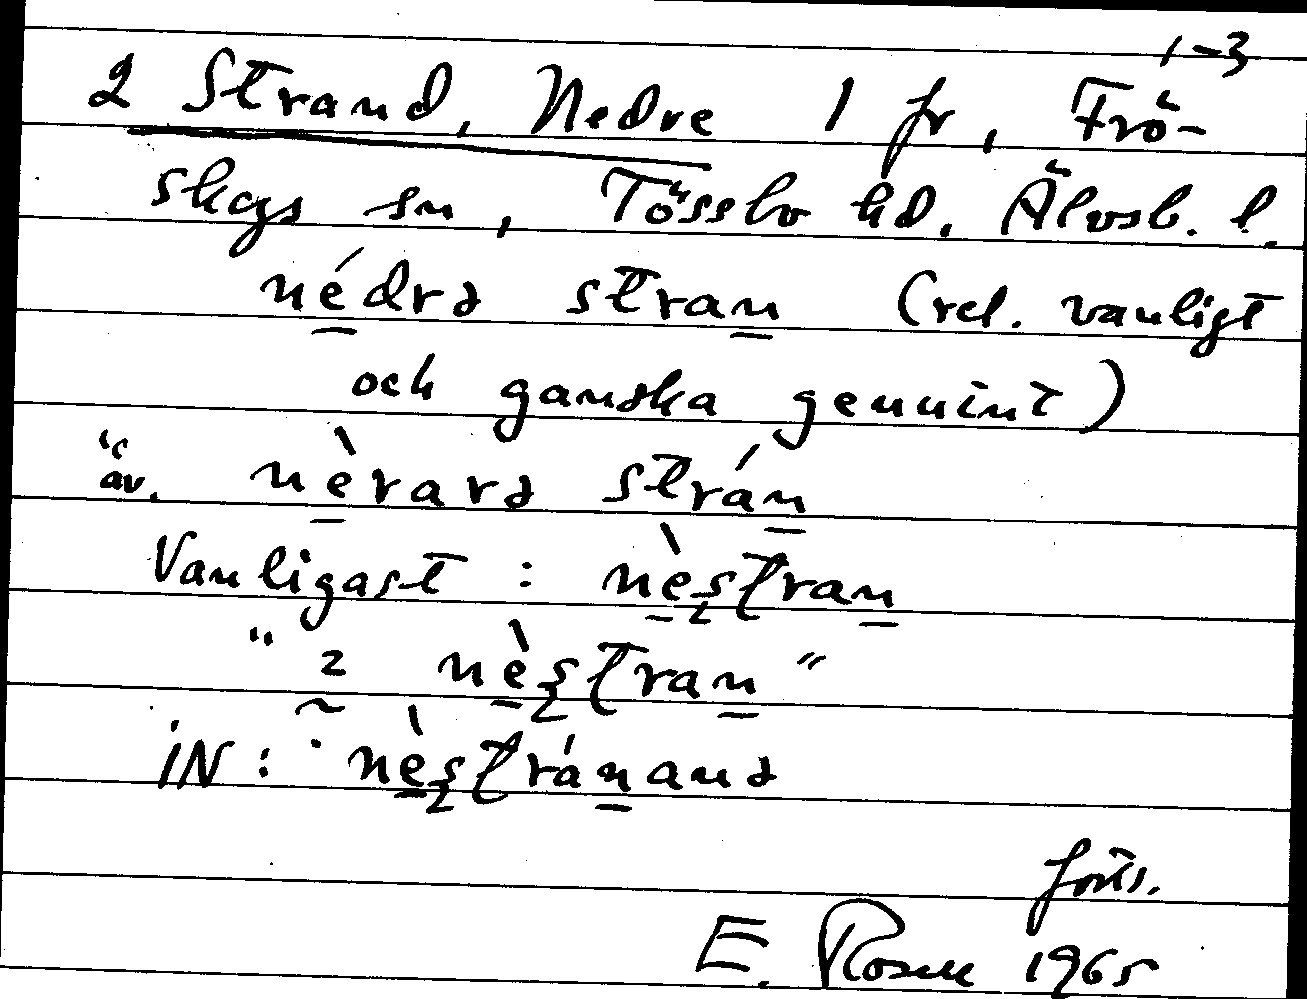 1-3
2 Strand, Nedre 1 fr, Frö-
skogs sn, Tössbo hd. Älvsb. l.
nédrə stran (rel. vanligt
och ganska genuint)
äv. nèrarə strán
Vanligast : nèstran
" 2 nèstran "
iN : nèstránanə
forts.
E. Rosell 1965